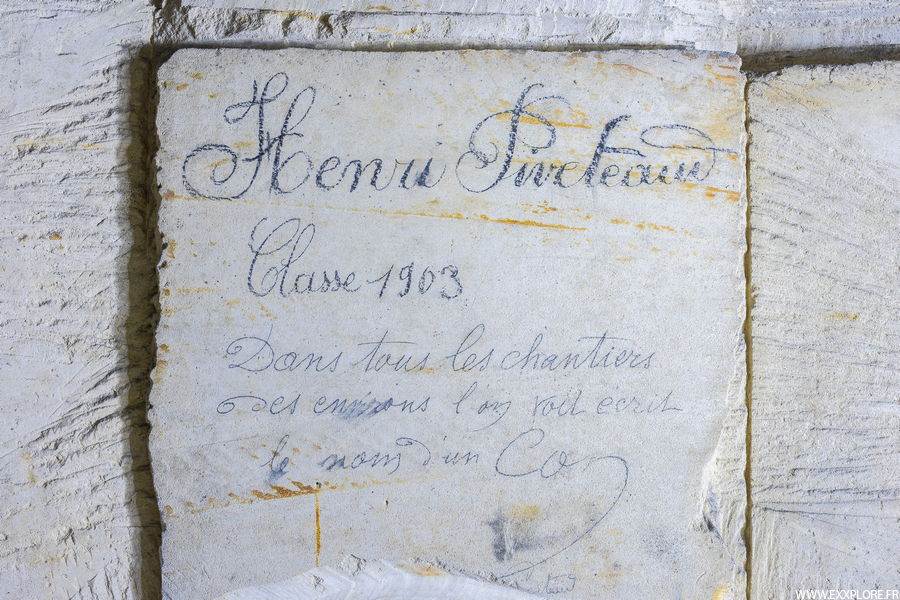 Henri Piveteau
Classe 1903
Dans tous les chantiers
des environs l'on voit écrit
le nom d'un Con
WWW.EXXPLORE.FR